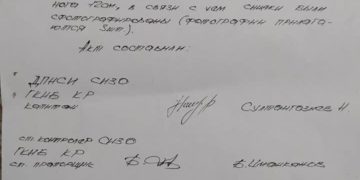 ного ÷20м, в связи с чем снимки были
сфотографированы (фотографии прилага-
ются 3шт).
Акт составили:
ДПНСИ СИЗО
ГКНБ КР
капитан Султангазиев Н
ст. контролер СИЗО
ГКНБ КР
ст. прапорщик